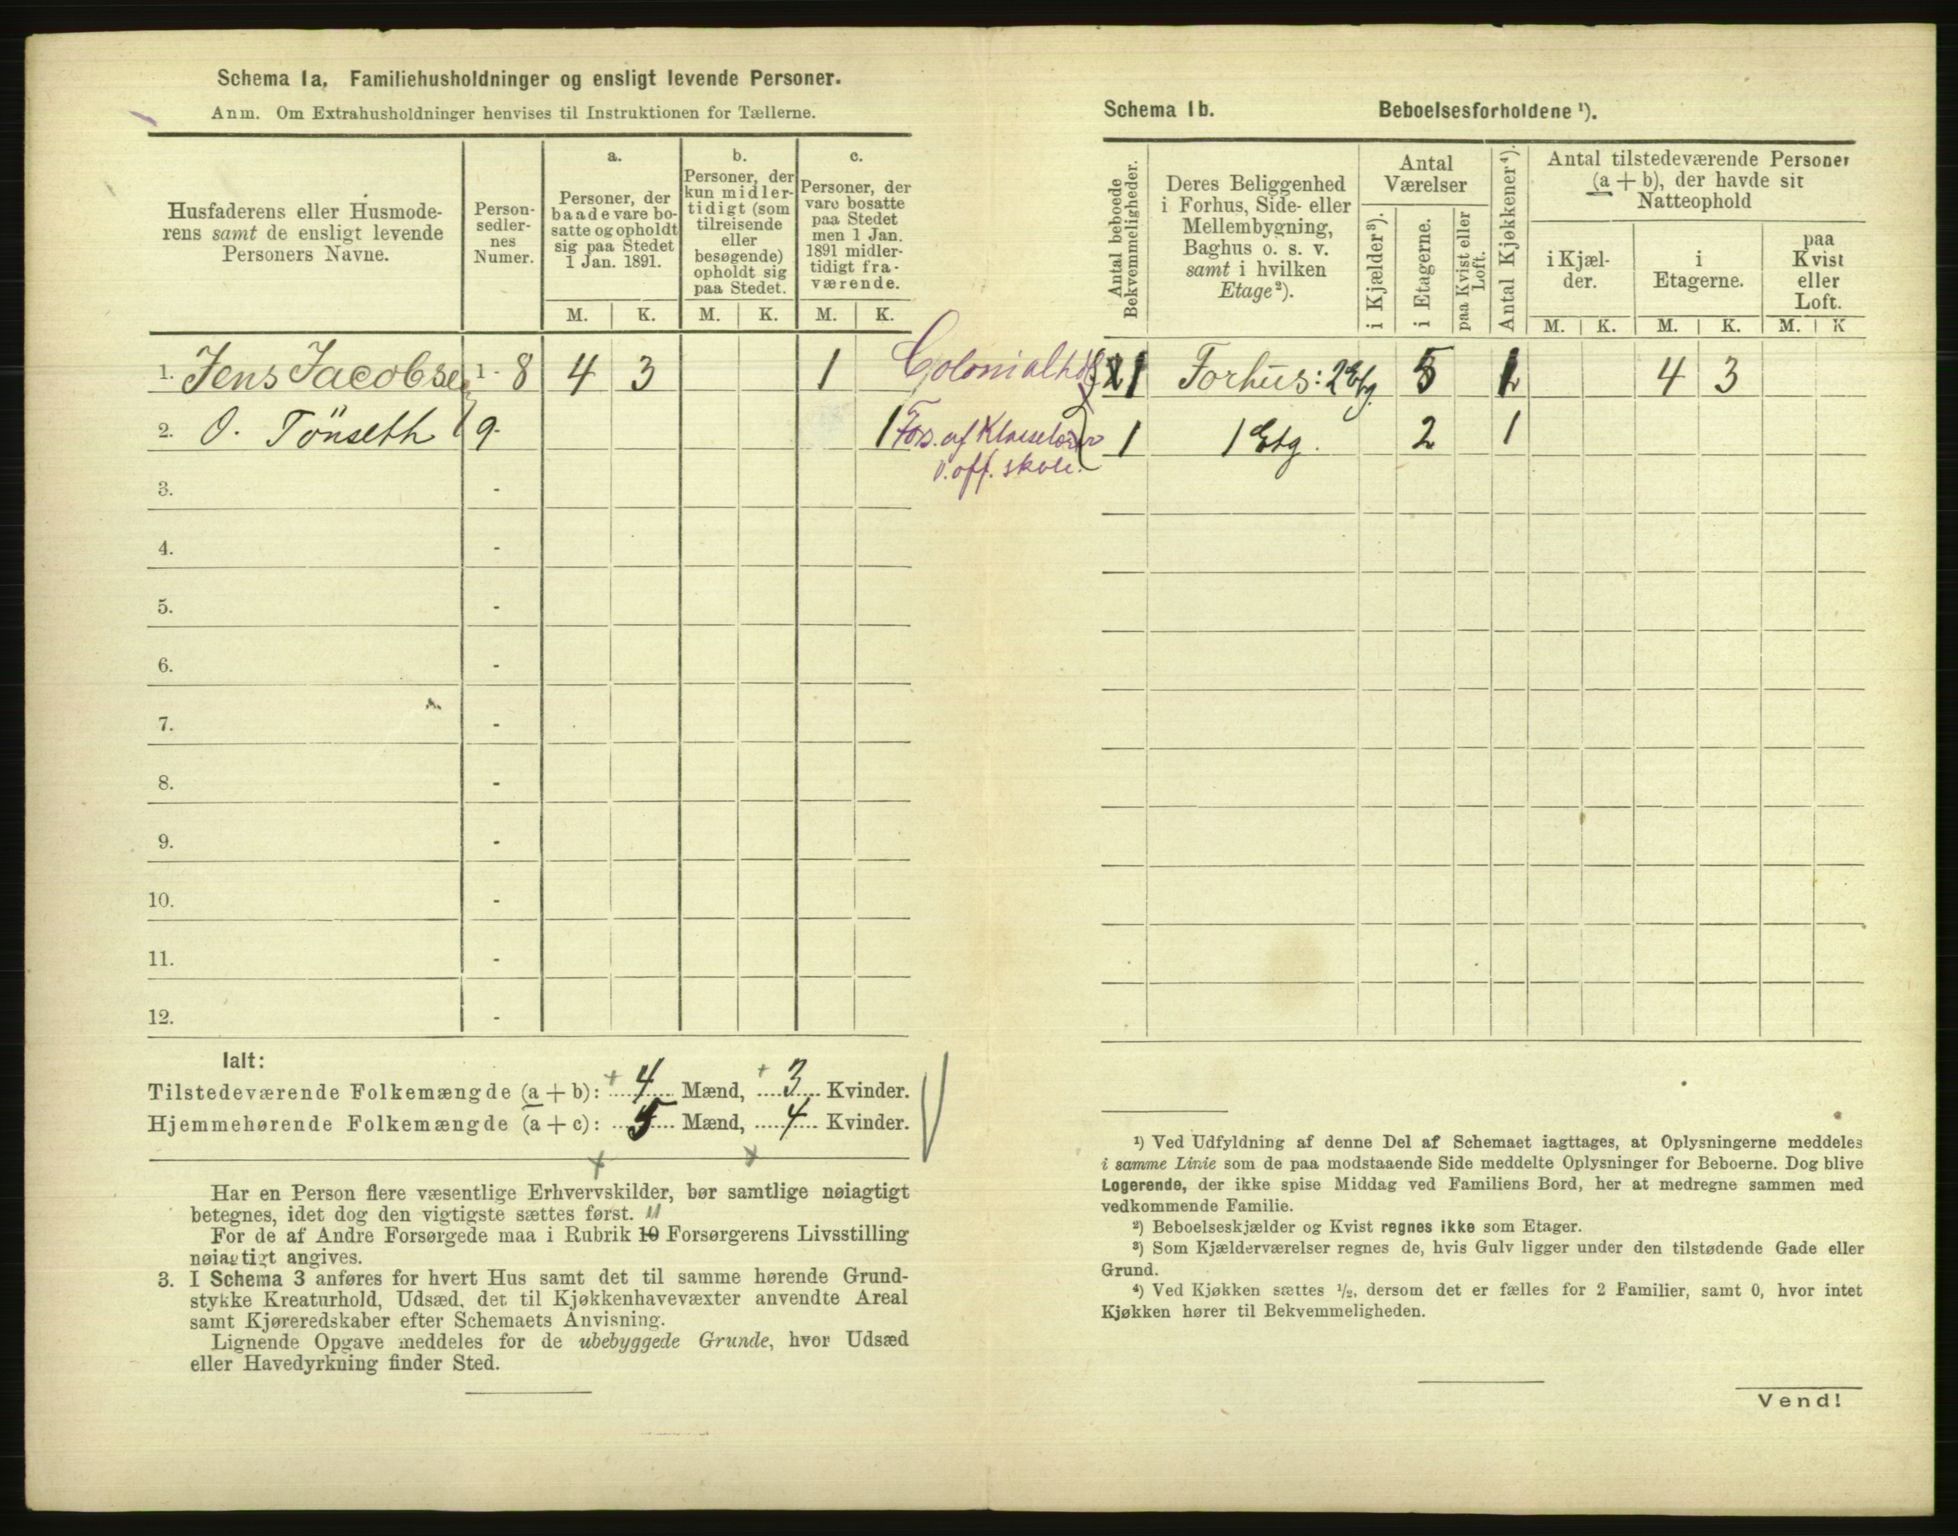 Schema 1a. Familiehusholdninger og ensligt levende Personer.
Anm. Om Extrahusholdninger henvises til Instruktionen for Tællerne.
Husfaderens eller Husmode-
rens samt de ensligt levende
Personers Navne.
Person-
sedler-
nes
Numer.
a.
Personer, der
baade vare bo-
satte og opholdt
sig paa Stedet
1 Jan. 1891.
b.
Personer, der
kun midler-
tidigt (som
tilreisende
eller
besøgende)
opholdt sig
paa Stedet.
c.
Personer, der
vare bosatte
paa Stedet
men 1 Jan.
1891 midler-
tidigt fra-
værende.
M. K. M. K. M. K.
1. Jens Jacobsen 1 - 8 4 3 1
Colonialhdl
2. O. Tönseth 9 - 1
Fors. af Klasselærer
v. off. skole.
3. -
4. -
5. -
6. -
7. -
8. -
9. -
10. -
11. -
12. -
Ialt:
Tilstedeværende Folkemængde (a + b): 4 Mænd, 3 Kvinder.
Hjemmehørende Folkemængde (a + c): 5 Mænd, 4 Kvinder.
Har en Person flere væsentlige Erhvervskilder, bør samtlige nøiagtigt
betegnes, idet dog den vigtigste sættes først. 11
For de af Andre Forsørgede maa i Rubrik 10 Forsørgerens Livsstilling
nøiagtigt angives.
3. I Schema 3 anføres for hvert Hus samt det til samme hørende Grund-
stykke Kreaturhold, Udsæd, det til Kjøkkenhavevæxter anvendte Areal
samt Kjøreredskaber efter Schemaets Anvisning.
Lignende Opgave meddeles for de ubebyggede Grunde, hvor Udsæd
eller Havedyrkning finder Sted.
Schema 1b. Beboelsesforholdene ¹).
Antal beboede
Bekvemmeligheder.
Deres Beliggenhed
i Forhus, Side- eller
Mellembygning,
Baghus o. s. v.
samt i hvilken
Etage²).
Antal
Værelser
i Kjælder³).
i Etagerne.
paa Kvist eller
Loft.
Antal Kjøkkener⁴).
Antal tilstedeværende Personer
(a + b), der havde sit
Natteophold
i Kjæl-
der.
i
Etagerne.
paa
Kvist
eller
Loft.
M. K. M. K. M. K
1 Forhus: 2 Etg. 5 1 4 3
1 1 Etg. 2 1
¹) Ved Udfyldning af denne Del af Schemaet iagttages, at Oplysningerne meddeles
i samme Linie som de paa modstaaende Side meddelte Oplysninger for Beboerne. Dog blive
Logerende, der ikke spise Middag ved Familiens Bord, her at medregne sammen med
vedkommende Familie.
²) Beboelseskjælder og Kvist regnes ikke som Etager.
³) Som Kjælderværelser regnes de, hvis Gulv ligger under den tilstødende Gade eller
Grund.
⁴) Ved Kjøkken sættes ½, dersom det er fælles for 2 Familier, samt 0, hvor intet
Kjøkken hører til Bekvemmeligheden.
Vend!